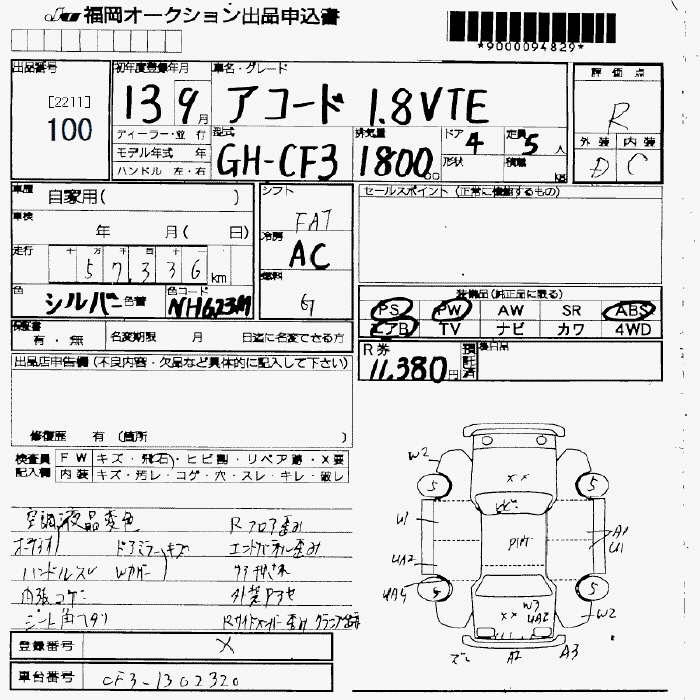 福岡オークション出品申込書
*9000094829*
出品番号
[2211]
100
初年度登録年月
13 9月
車名・グレード
アコード 1.8VTE
評価点
R
外装 内装
D C
ディーラー・並行
モデル年式 年
ハンドル 左・右
型式
GH-CF3
排気量
1800cc
ドア 4
形状
定員 5人
積載 kg
車歴 自家用( )
車検 年 月( 日)
走行 十 万 千 百 十
57,336 km
色 シルバー 色替
色コード NH623M
シフト
FAT
冷房
AC
燃料
G
セールスポイント (正常に機能するもの)
装備品 (純正品に限る)
PS PW AW SR ABS
エアB TV ナビ カワ 4WD
保証書
有・無
名変期限 月 日迄に名変できる方
R券
11,380円
預託済
出品店申告欄 (不良内容・欠品など具体的に記入して下さい)
修復歴 有 (箇所 )
検査員
記入欄
FW キズ・飛石・ヒビ割・リペア跡・X要
内装 キズ・汚レ・コゲ・穴・スレ・キレ・破レ
空調液晶変色 Rフロア歪み
ドアミラーキズ
ハンドルスレ Wカバー
内張コゲ
シート
登録番号 X
車台番号 CF3-1302320
W2
5 5
U1
A1
U1
UA2
UA4
5 5
XX
XX
W3
UA2
W2
ズレ A2 A3